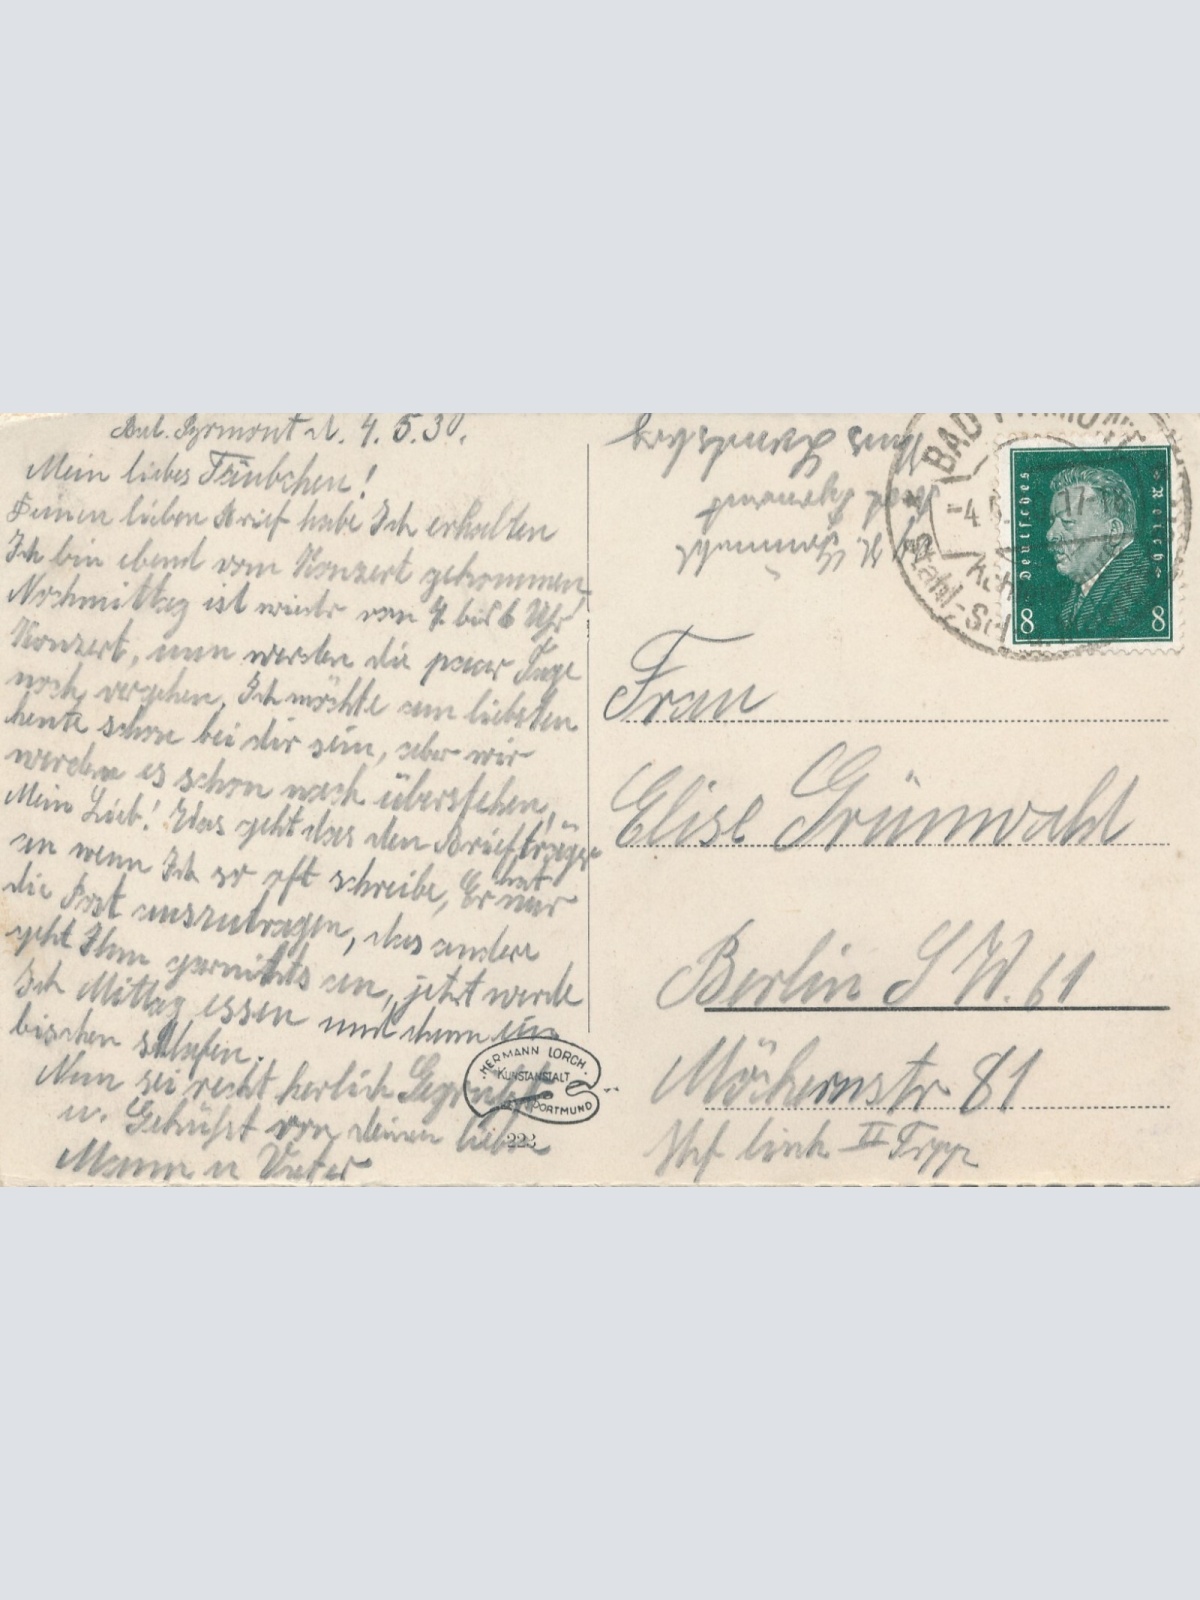 Bad. Pyrmont d. 4.5.30.
Mein liebes Täubchen!
Deinen lieben Brief habe Ich erhalten
Ich bin ebend vom Konzert gekommen,
Nachmittag ist wieder von 4 bis 6 Uhr
Konzert, nun werden die paar Tage
noch vergehen, Ich möchte am liebsten
heute schon bei dir sein, aber wir
werden es schon noch überstehen,
Mein Lieb! Was geht das den Briefträger
an wenn Ich so oft schreibe, Er hat nur
die Post auszutragen, das andere
geht Ihm garnichts an, jetzt werde
Ich Mittag essen und dann ein
bischen schlafen.
Nun sei recht herlich Gegrüßt
u. Geküßt von deinen lieben
Mann u Vater
HERMANN LORCH
KUNSTANSTALT
DORTMUND
222
Bad Pyrmont
Haus
BAD PYRMONT
-4.5. 17-18
Stahl-
Deutsches Reich
8 8
Frau
Elise Grünwald
Berlin S W. 61
Möckernstr 81
Hof link II Trpp